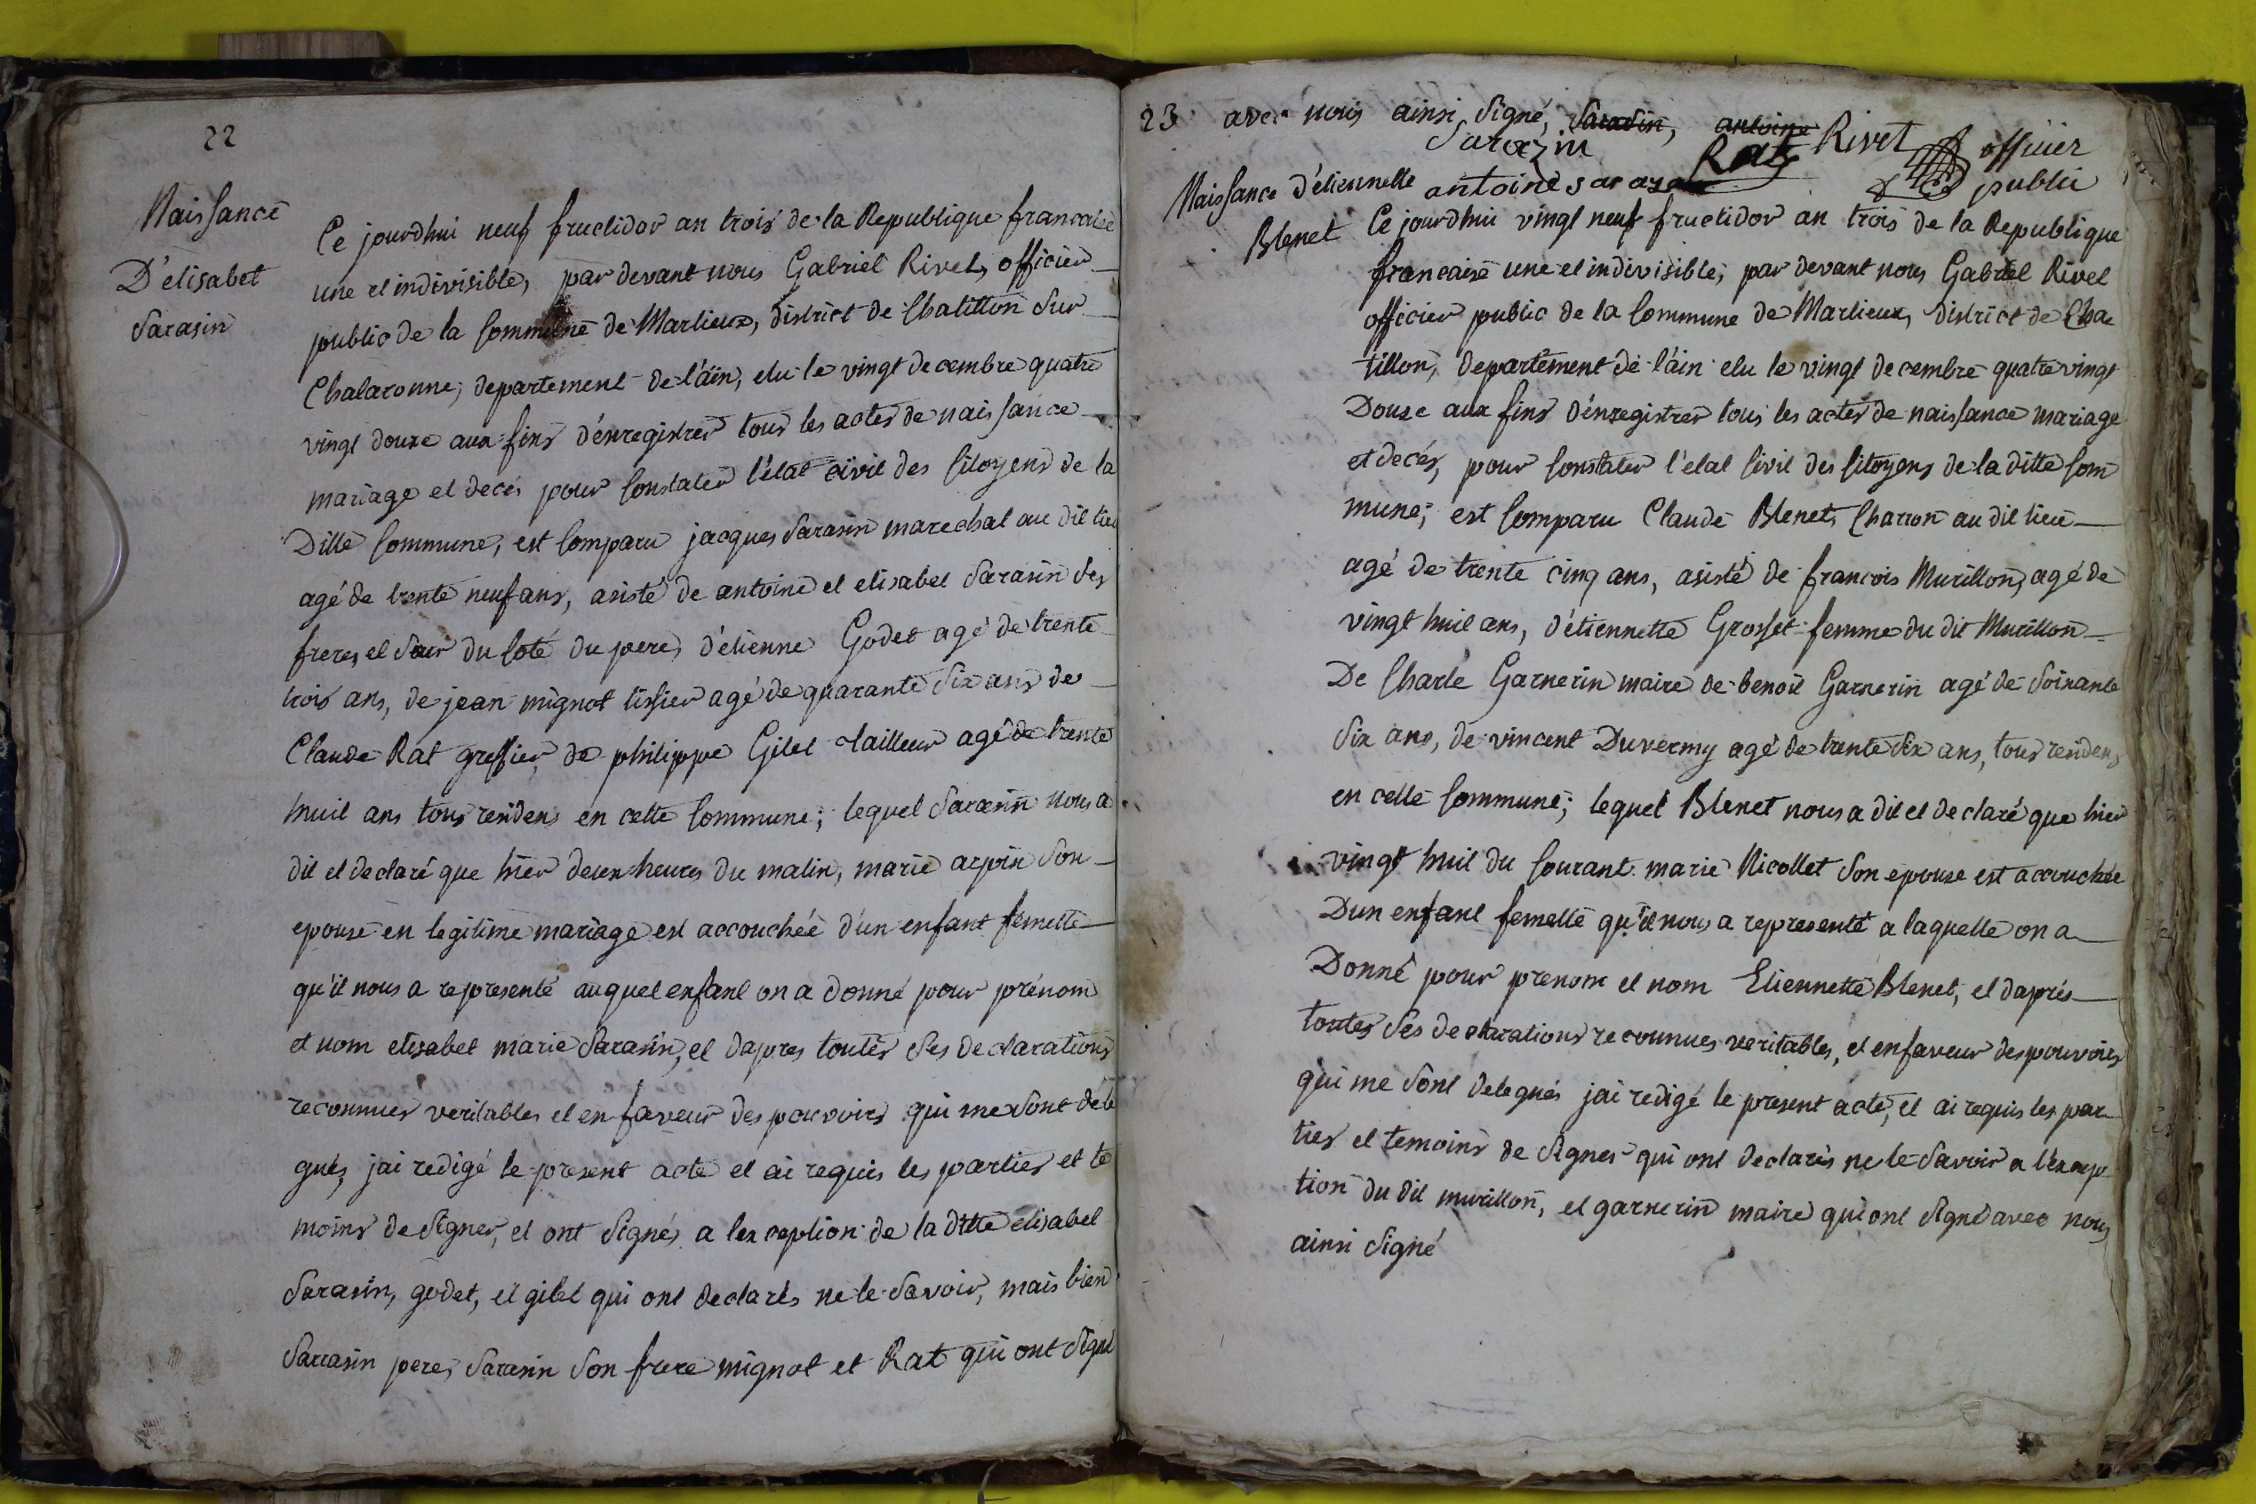 22
Naissance
D'élisabet
Sarasin
Ce jourdhui neuf fructidor an trois de la Republique francaise
une et indivisible, par devant nous Gabriel Rivet, officier
public de la Commune de Marlieux, district de Chatillon Sur
Chalaronne, departement de l'áin, elu le vingt decembre quatre
vingt douze aux fins d'énregistrer tous les actes de naissance
mariage et decés pour Constater l'état civil des Citoyens de la
Ditte Commune, est Comparu jacques Sarasin marechal au dit lieu
agé de trente neuf ans, asisté de antoine et elisabet Sarasin Ses
freres et Sœur du Coté du pere, d'étienne Godet agé de trente
trois ans, de jean mignot tissier agé de quarante Six ans de
Claude Rat greffier, de philippe Gilet tailleur agé de trente
huit ans tous residens en cette Commune; lequel Sarasin nous a
dit et declaré que hier deux heures du matin, marie arpin Son
epouse en legitime mariage est accouchée d'un enfant femelle
qu'il nous a representé auquel enfant on a donné pour prénom
et nom elisabet marie Sarasin, et dapres toutes Ses declarations
reconnues veritables et en faveur des pouvoirs qui me Sont déle
gués, jai redigé le present acte et ai requis les parties et te
moins de Signer, et ont Signés a lexception de la ditte elisabet
Sarasin, godet, et gilet qui ont declarés ne le Savoir, mais bien
Sarrasin pere, Sarasin Son frere mignot et Rat qui ont Signé
23 avec nous ainsi Signé, Sarasin, antoine Rivet officier
Sarazin Rat public
antoine sarazin
Naissance d'étiennette
Blenet
Ce jourdhui vingt neuf fructidor an trois de la Republique
francaise une et indivisible, par devant nous Gabriel Rivet
officier public de la Commune de Marlieux, district de Cha
tillon, departement de l'áin elu le vingt decembre quatre vingt
Douze aux fins d'énregistrer tous les actes de naissance mariage
et decés, pour Constater l'etat Civil des Citoyens de la ditte Com
mune, est Comparu Claude Blenet, Charron au dit lieu
agé de trente cinq ans, asisté de francois Murillon, agé de
vingt huit ans, d'étiennette Grosset femme du dit Murillon
De Charle Garnerin maire de benoit Garnerin agé de Soixante
Six ans, de vincent Duvermy agé de trente Six ans, tous residens
en cette Commune; lequel Blenet nous a dit et declaré que hier
vingt huit du Courant marie Nicollet Son epouse est accouchée
Dun enfant femelle qu'il nous a representé a laquelle on a
Donné pour prenom et nom Etiennette Blenet, et daprés
toutes Ses declarations reconnues veritables, et en faveur des pouvoirs
qui me Sont delegués jai redigé le present acte, et ai requis les par
ties et temoins de Signer qui ont declarés ne le Savoir a l'éxcep
tion du dit murillon, et garnerin maire qui ont Signé avec nous
ainsi Signé